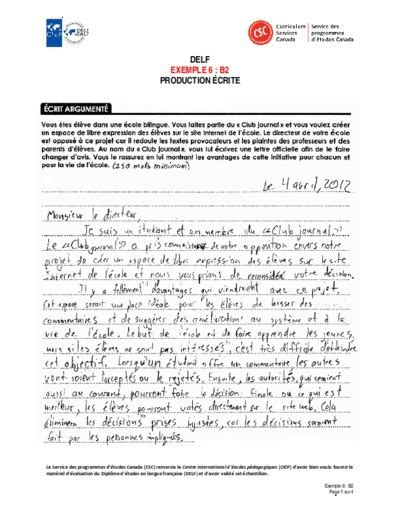 Curriculum Services Canada
Service des programmes d'études Canada
DELF
EXEMPLE 6 : B2
PRODUCTION ÉCRITE
ÉCRIT ARGUMENTÉ
Vous êtes élève dans une école bilingue. Vous faites partie du « Club journal » et vous voulez créer
un espace de libre expression des élèves sur le site Internet de l'école. Le directeur de votre école
est opposé à ce projet car il redoute les textes provocateurs et les plaintes des professeurs et des
parents d'élèves. Au nom du « Club journal », vous lui écrivez une lettre officielle afin de le faire
changer d'avis. Vous le rassurez en lui montrant les avantages de cette initiative pour chacun et
pour la vie de l'école. (250 mots minimum)
Le 4 avril, 2012
Monsieur le directeur,
Je suis un étudiant et un membre du «Club journal».
Le «Club journal» a pris connaissance de votre opposition envers notre
projet de créer un espace de libre expression des élèves sur le site
Internet de l'école et nous vous prions de reconsidéré votre décision.
Il y a tellement d'avantages qui viendraient avec ce projet.
Cet espace serait une place idéale pour les élèves de laisser des
commentaires et de suggérer des améliorations au système et à la
vie de l'école. Le but de l'école est de faire apprendre les jeunes,
mais si les élèves ne sont pas intéressés, c'est très difficile d'atteindre
cet objectif. Lorsqu'un étudiant offre un commentaire, les autres
vont soient l'acceptés ou le rejetés. Ensuite, les autorités, qui seraient
aussi au courant, pourront faire la décision finale ou ce qui est
meilleur, les élèves pourront votés directement sur le site web. Cela
éliminera les décisions prises injustes, car les décisions seraient
fait par les personnes impliqués.
Le Service des programmes d'études Canada (CSC) remercie le Centre international d'études pédagogiques (CIEP) d'avoir bien voulu fournir le
matériel d'évaluation du Diplôme d'études en langue française (DELF) et d'avoir validé cet échantillon.
Exemple 6 : B2
Page 1 sur 4